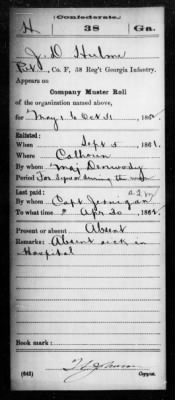 (Confederate.)
H 38 Ga.
J. D. Hulme
Pvt, Co. F, 38 Reg't Georgia Infantry.
Appears on
Company Muster Roll
of the organization named above,
for May 1 to Oct 31, 186
Enlisted:
When Sept 5, 1861.
Where Calhoun
By whom Maj Dunwody
Period during the war
Last paid:
By whom Capt Jernigan
To what time? Apr 30, 1862.
Present or absent Absent
Remarks: Absent sick in
Hospital
Book mark:
(642) Copyist.